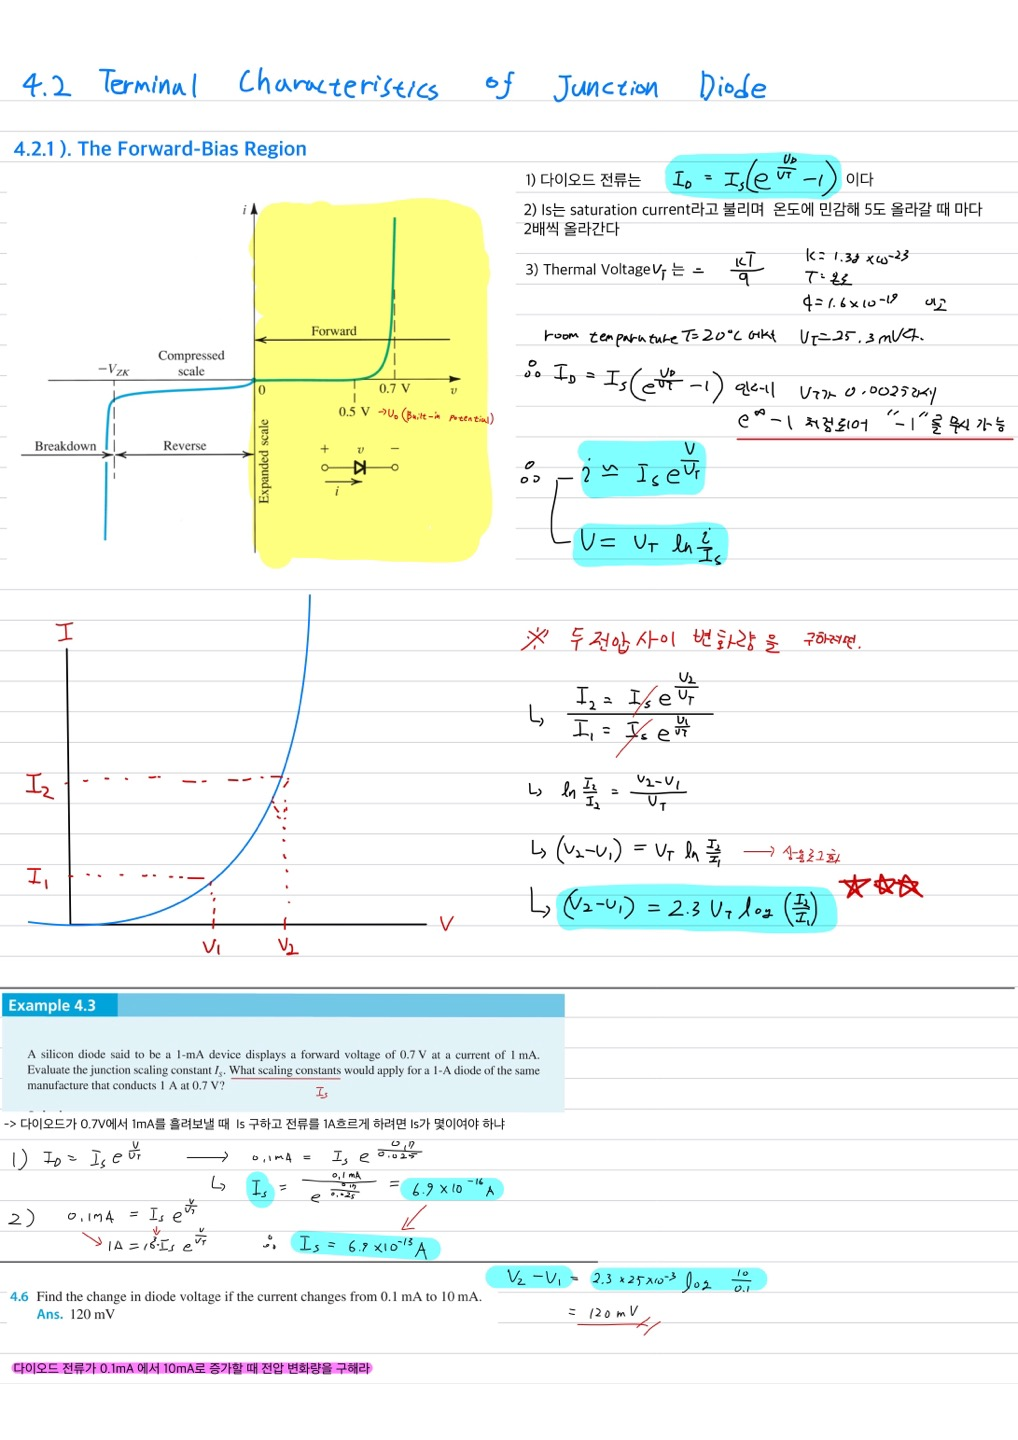 4.2 Terminal Characteristics of Junction Diode
4.2.1). The Forward-Bias Region
1) 다이오드 전류는 I_D = I_S(e^{V_D/V_T} -1) 이다
2) Is는 saturation current라고 불리며 온도에 민감해 5도 올라갈 때 마다
2배씩 올라간다
3) Thermal Voltage V_T 는 = kT/q
k = 1.38 x10-23
T = 온도
q = 1.6 x 10^{-19} 이고
room temparature T=20°C 에서 V_T=25.3mV다.
∴ I_D = I_S(e^{V_D/V_T} -1) 인데 V_T가 0.0025라서
e^∞ -1 처럼되어 "-1"를 무시 가능
∴ i ≃ I_S e^{V/V_T}
V = V_T ln i/I_S
i
Forward
Compressed
scale
-V_ZK
0
0.7 V
v
0.5 V → V_0 (Built-in potential)
Breakdown
Reverse
Expanded scale
+ v −
i
I
I_2
I_1
V_1
V_2
V
※ 두 전압 사이 변화량을 구하려면.
↳ I_2 = I_S e^{V_2/V_T}
I_1 = I_S e^{V_1/V_T}
↳ ln I_2/I_2 = V_2-V_1/V_T
↳ (V_2-V_1) = V_T ln I_2/I_1 → 상용로그화
↳ (V_2-V_1) = 2.3 V_T log (I_2/I_1) ☆☆☆
Example 4.3
A silicon diode said to be a 1-mA device displays a forward voltage of 0.7 V at a current of 1 mA.
Evaluate the junction scaling constant I_S. What scaling constants would apply for a 1-A diode of the same
manufacture that conducts 1 A at 0.7 V?
I_S
-> 다이오드가 0.7V에서 1mA를 흘려보낼 때 Is 구하고 전류를 1A흐르게 하려면 Is가 몇이여야 하냐
1) I_D = I_S e^{V/V_T} → 0.1mA = I_S e^{0.7/0.025}
↳ I_S = 0.1mA/e^{0.7/0.025} = 6.9 x 10^{-16} A
2) 0.1mA = I_S e^{V/V_T}
1A = 10^3·I_S e^{V/V_T} ∴ I_S = 6.9 x10^{-13} A
4.6 Find the change in diode voltage if the current changes from 0.1 mA to 10 mA.
Ans. 120 mV
V_2 - V_1 = 2.3 x 25 x10^{-3} log 10/0.1
= 120 mV
다이오드 전류가 0.1mA 에서 10mA로 증가할 때 전압 변화량을 구해라